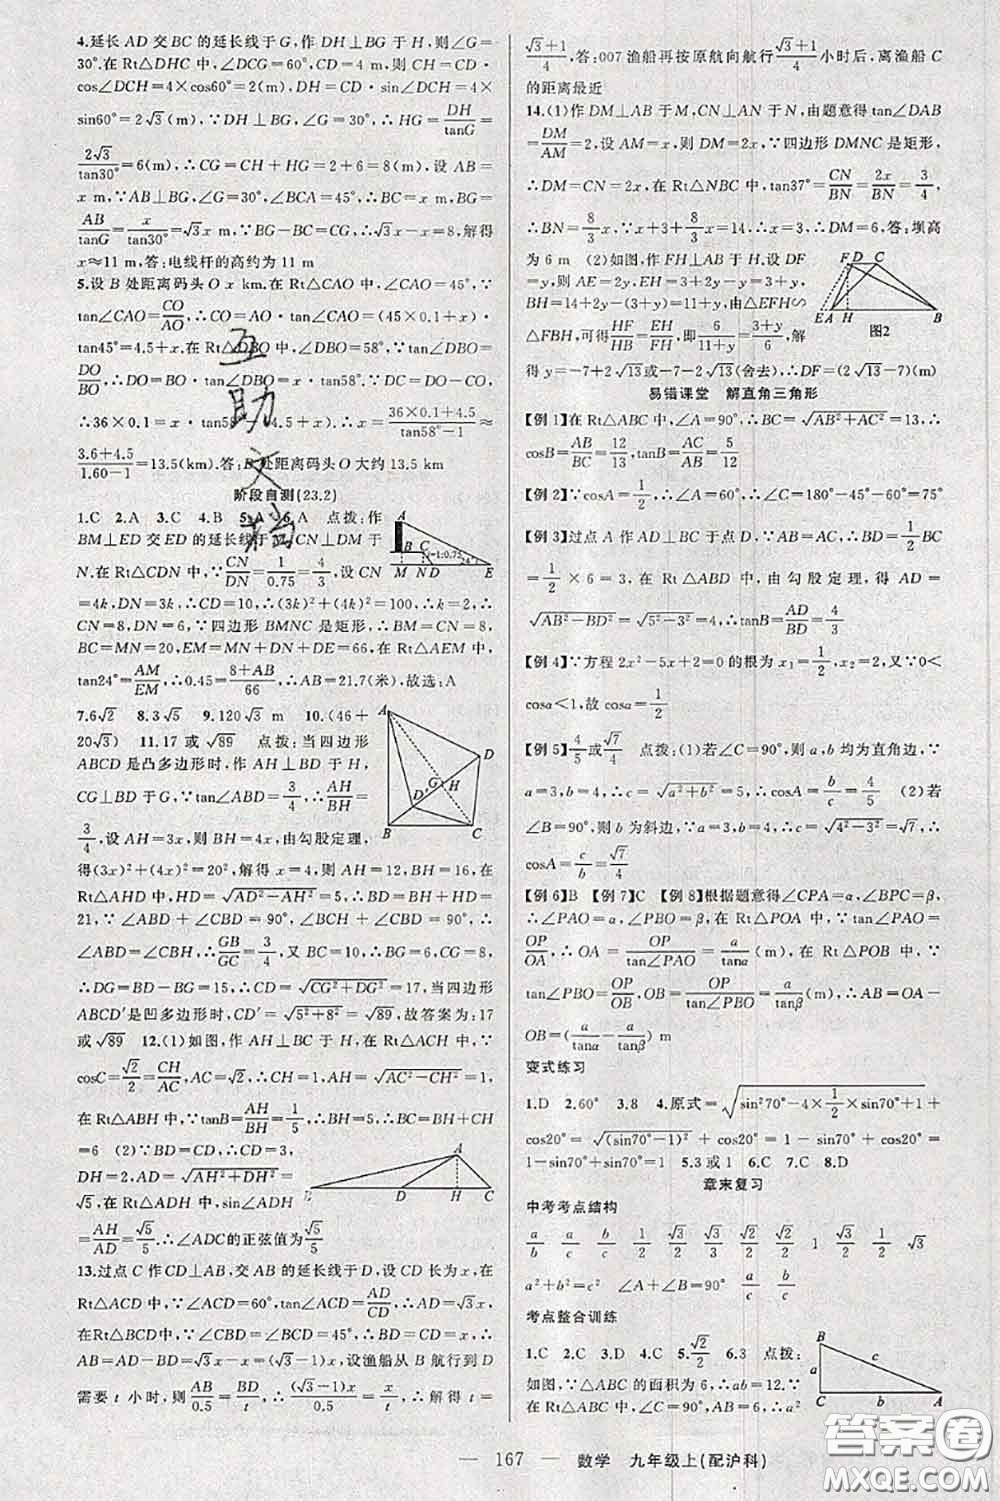 4.延长 AD 交 BC 的延长线于 G,作 DH⊥BG 于 H,则∠G=
30°.在 Rt△DHC 中,∠DCG=60°,CD=4 m,则 CH=CD·
cos∠DCH=4×cos60°=2(m),DH=CD·sin∠DCH=4×
sin60°=2√3(m),∵DH⊥BG,∠G=30°,∴HG=DH/tanG=
2√3/tan30°=6(m),∴CG=CH+HG=2+6=8(m),设 AB=
x m,∵AB⊥BG,∠G=30°,∠BCA=45°,∴BC=x m,BG=
AB/tanG=x/tan30°=√3x m,∵BG-BC=CG,∴√3x-x=8,解得
x≈11 m,答:电线杆的高约为 11 m
5.设 B 处距离码头 O x km.在 Rt△CAO 中,∠CAO=45°,∵
tan∠CAO=CO/AO,∴CO=AO·tan∠CAO=(45×0.1+x)·
tan45°=4.5+x,在 Rt△DBO 中,∠DBO=58°,∵tan∠DBO=
DO/BO,∴DO=BO·tan∠DBO=x·tan58°.∵DC=DO-CO,
∴36×0.1=x·tan58°-(4.5+x),∴x=(36×0.1+4.5)/(tan58°-1)≈
(3.6+4.5)/(1.60-1)=13.5(km).答:B 处距离码头 O 大约 13.5 km
阶段自测(23.2)
1.C 2.A 3.C 4.B 5.A 6.A 点拨:作
BM⊥ED 交 ED 的延长线于 M,CN⊥DM 于
N.在 Rt△CDN 中,∵CN/DN=1/0.75=4/3,设 CN
=4k,DN=3k,∴CD=10,∴(3k)²+(4k)²=100,∴k=2,∴
CN=8,DN=6,∵四边形 BMNC 是矩形,∴BM=CN=8,
BC=MN=20,EM=MN+DN+DE=66,在 Rt△AEM 中,
tan24°=AM/EM,∴0.45=(8+AB)/66,∴AB=21.7(米),故选:A
7.6√2 8.3√5 9.120√3 m 10.(46+
20√3) 11.17 或√89 点拨:当四边形
ABCD 是凸多边形时,作 AH⊥BD 于 H,
CG⊥BD 于 G,∵tan∠ABD=3/4,∴AH/BH=
3/4,设 AH=3x,则 BH=4x,由勾股定理,
得(3x)²+(4x)²=20²,解得 x=4,则 AH=12,BH=16,在
Rt△AHD 中,HD=√(AD²-AH²)=5,∴BD=BH+HD=
21,∵∠ABD+∠CBH=90°,∠BCH+∠CBH=90°,∴
∠ABD=∠CBH,∴GB/GC=3/4,又 BC=10,∴BG=6,CG=8,
∴DG=BD-BG=15,∴CD=√(CG²+DG²)=17,当四边形
ABCD′是凹多边形时,CD′=√(5²+8²)=√89,故答案为:17
或√89 12.(1)如图,作 AH⊥BC 于 H,在 Rt△ACH 中,∵
cosC=√2/2=CH/AC,AC=√2,∴CH=1,AH=√(AC²-CH²)=1,
在 Rt△ABH 中,∵tanB=AH/BH=1/5,∴BH=5,∴BC=BH+CH
=6 (2)∵BD=CD,∴CD=3,
DH=2,AD=√(AH²+DH²)=
√5,在 Rt△ADH 中,sin∠ADH
=AH/AD=√5/5.∴∠ADC的正弦值为√5/5
13.过点 C 作 CD⊥AB,交 AB 的延长线于 D,设 CD 长为 x,在
Rt△ACD 中,∵∠ACD=60°,tan∠ACD=AD/CD,∴AD=√3x,在
Rt△BCD 中,∵∠CBD=∠BCD=45°,∴BD=CD=x,∴
AB=AD-BD=√3x-x=(√3-1)x,设渔船从 B 航行到 D
需要 t 小时,则 AB/0.5=BD/t,∴(√3-1)x/0.5=x/t,∴解得 t=
(√3+1)/4,答:007渔船再按原航向航行(√3+1)/4小时后,离渔船 C
的距离最近
14.(1)作 DM⊥AB 于 M,CN⊥AN 于 N,由题意得 tan∠DAB
=DM/AM=2,设 AM=x,则 DM=2x,∵四边形 DMNC 是矩形,
∴DM=CN=2x,在 Rt△NBC 中,tan37°=CN/BN=2x/BN=3/4,
∴BN=8/3x,∵x+3+8/3x=14,∴x=3,∴DM=6,答:坝高
为 6 m (2)如图,作 FH⊥AB 于 H,设 DF
=y,则 AE=2y,EH=3+2y-y=3+y,
BH=14+2y-(3+y)=11+y,由△EFH∽
△FBH,可得HF/HB=EH/FH,即6/(11+y)=(3+y)/6,解
图2
得 y=-7+2√13或-7-2√13(舍去),∴DF=(2√13-7)(m)
易错课堂 解直角三角形
【例 1】在 Rt△ABC 中,∠A=90°,∴BC=√(AB²+AC²)=13,∴
cosB=AB/BC=5/13,tanB=AC/AB=12/5
【例 2】∵cosA=1/2,∴∠A=60°,∴∠C=180°-45°-60°=75°
【例 3】过点 A 作 AD⊥BC 于点 D,∵AB=AC,∴BD=1/2BC=
1/2×6=3,在 Rt△ABD 中,由勾股定理,得 AD=
√(AB²-BD²)=√(5²-3²)=4,∴tanB=AD/BD=4/3
【例 4】∵方程 2x²-5x+2=0的根为 x₁=1/2,x₂=2,又∵0<
cosα<1,故 cosα=1/2
【例 5】4/5或√7/4 点拨:(1)若∠C=90°,则 a,b 均为直角边,∵
a=3,b=4,∴c=√(a²+b²)=5,∴cosA=b/c=4/5 (2)若
∠B=90°,则 b 为斜边,∵a=3,b=4,∴c=√(4²-3²)=√7,∴
cosA=c/b=√7/4
【例 6】B 【例 7】C 【例 8】根据题意得∠CPA=α,∠BPC=β,
∴∠PAO=α,∠PBO=β,在 Rt△POA 中,∵tan∠PAO=
OP/OA,∴OA=OP/tan∠PAO=a/tanα(m),在 Rt△POB 中,∵
tan∠PBO=OP/OB,∴OB=OP/tan∠PBO=a/tanβ(m),∴AB=OA-
OB=(a/tanα-a/tanβ) m
变式练习
1.D 2.60° 3.8 4.原式=√(sin²70°-4×1/2×sin70°+1)+
cos20°=√((sin70°-1)²)+cos20°=1-sin70°+cos20°=
1-sin70°+sin70°=1 5.3 或 1 6.C 7.C 8.D
章末复习
中考考点结构
a/b a/c b/c 1/2 √3/2 √3/3 √2/2 √2/2 1 √3/2 1/2 √3
a²+b²=c² ∠A+∠B=90° a/c b/c
考点整合训练
1.C 2.C 3.D 4.C 5.√2/2 6.3 点拨:
如图,∵△ABC 的面积为 6,∴ab=12.∵
在 Rt△ABC 中,∠C=90°,AB=5,∴a²
— 167 — 数学 九年级上(配沪科)
互助文档
答案圈
MXQE.COM